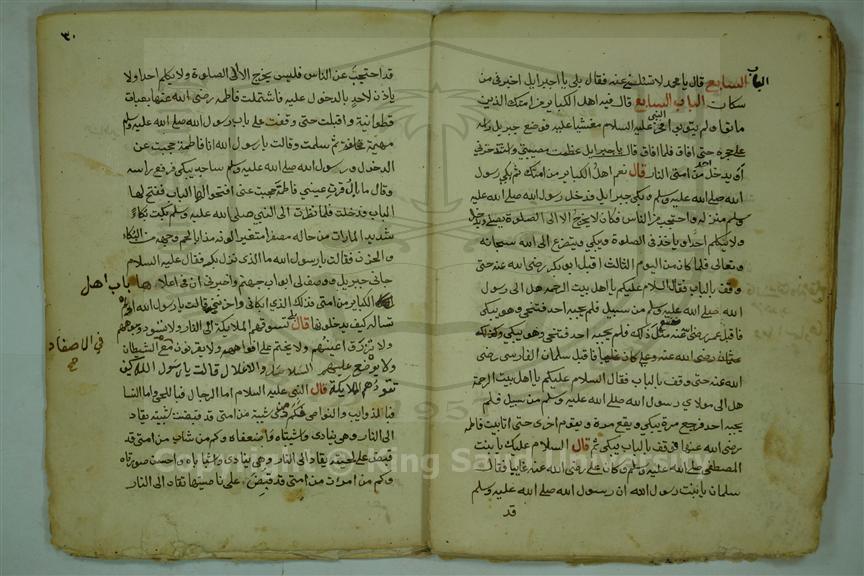 الباب السابع قال يا محمد لا تسئلني عنه فقال بلى يا جبرايل اخبرني من
سكان الباب السابع قال فيه اهل الكباير من امتك الذين
ماتوا ولم يتوبوا فخر النبي عليه السلام مغشيا عليه فوضع جبريل راسه
على حجره حتى افاق فلما افاق قال يا جبرايل عظمت مصيبتي واشتد حزني
أو يدخل احد من امتي النار قال نعم اهل الكباير من امتك ثم بكى رسول
الله صلى الله عليه وسلم وبكى جبرايل فدخل رسول الله صلى الله عليه
وسلم منزله واحتجب من الناس فكان لا يخرج الا الى الصلوة يصلي ويدخل
ولا يكلم احدا وياخذ في الصلوة ويبكي ويتضرع الى الله سبحانه
وتعالى فلما كان من اليوم الثالث اقبل ابو بكر رضى الله عنه حتى
وقف بالباب فقال السلام عليكم يا اهل بيت الرحمة هل الى رسول
الله صلى الله عليه وسلم من سبيل فلم يجبه احد فتنحى وهو يبكي
فاقبل عمر رضى عنه فصنع مثل ذلك فلم يجبه احد فتنحى وهو يبكي وكذلك
عثمان رضى الله عنه وعلي كان غايبا فاقبل سلمان الفارسي رضى
الله عنه حتى وقف بالباب فقال السلام عليكم يا اهل بيت الرحمة
هل الى مولاي رسول الله صلى الله عليه وسلم من سبيل فلم
يجبه احد فرجع مرة يبكي ويقع مرة ويقوم اخرى حتى اتا بيت فاطمة
رضى الله عنها فوقف بالباب يبكي ثم قال السلام عليك يا بنت
المصطفى صلى الله عليه وسلم وكان على رضى الله عنه غايبا فقال
سلمان يا بنت رسول الله ان رسول الله صلى الله عليه وسلم
قد
٣٠
قد احتجب عن الناس فليس يخرج الا الى الصلوة ولا يكلم احدا ولا
ياذن لاحد بالدخول عليه فاشتملت فاطمه رضى الله عنها بعباءة
قطوانية واقبلت حتى وقفت على باب رسول الله صلى الله عليه وسلم
ثم سلمت وقالت يا رسول الله انا فاطمة حجبت عن
الدخول ورسول الله صلى الله عليه وسلم ساجد يبكي فرفع راسه
وقال ما بال قرة عيني فاطمة حجبت عني افتحوا لها الباب ففتح لها
الباب فدخلت فلما نظرت الى النبي صلى الله عليه وسلم بكت بكاء
شديد لما رات من حاله مصفرا متغيرا لونه مذابا لحم وجهه من البكاء
والحزن فقالت يا رسول الله ما الذى نزل بك فقال عليه السلام
جاني جبريل ووصف لي ابواب جهنم واخبرني ان في اعلا
ها باب اهل
الكباير من امتي فذلك الذي ابكاني واحزنني قالت يا رسول الله اولم
تساله كيف يدخلونها قال بلى تسوقهم الملايكة الى النار ولا تسود وجوههم
ولا تزرق اعينهم ولا يختم على افواههم ولا يقرنون مع الشيطان
في الاصفاد
صح
ولا يوضع عليهم السلاسل والاغلال قالت يا رسول الله كيف
تقودهم الملايكة قال النبي عليه السلام اما الرجال فباللحى واما النسا
فبالذوايب والنواصى فكم من ذى شيبة من امتى قد قبضت شيبته يقاد
الى النار وهي ينادى واشيبتاه واضعفاه وكم من شاب من امتى قد
قبض على لحيته يقاد الى النار وهي ينادى واشباباه واحسن صورتاه
وكم من امرات من امتى قد قبض على ناصيتها تقاد الى النار
Copyright © King Saud University
1957